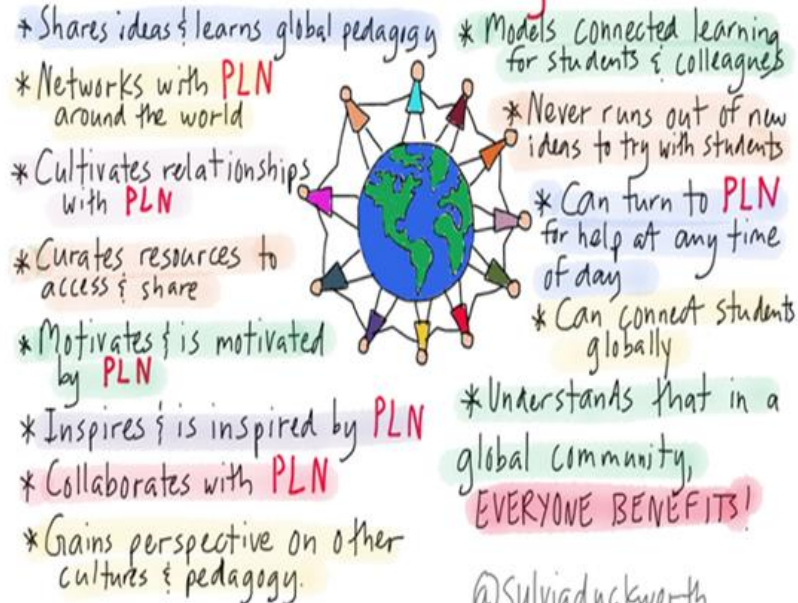 * Shares ideas & learns global pedagogy
* Networks with PLN
around the world
* Cultivates relationships
with PLN
* Curates resources to
access & share
* Motivates & is motivated
by PLN
* Inspires & is inspired by PLN
* Collaborates with PLN
* Gains perspective on other
cultures & pedagogy.
* Models connected learning
for students & colleagues
* Never runs out of new
ideas to try with students
* Can turn to PLN
for help at any time
of day
* Can connect students
globally
* Understands that in a
global community,
EVERYONE BENEFITS!
@sylviaduckworth